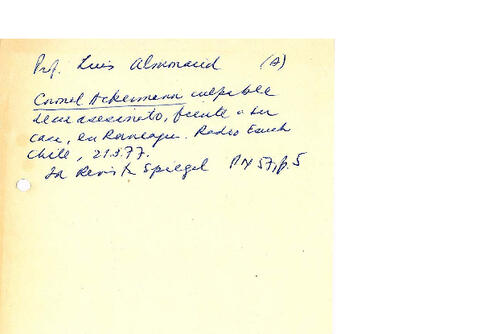 Prof. Luis Almonacid (A)
Coronel Ackermann culpable
de su asesinato, frente a su
casa, en Rancagua. Radio Escuch
Chile, 21.3.77.
La Revista Spiegel Nº 57, p. 5